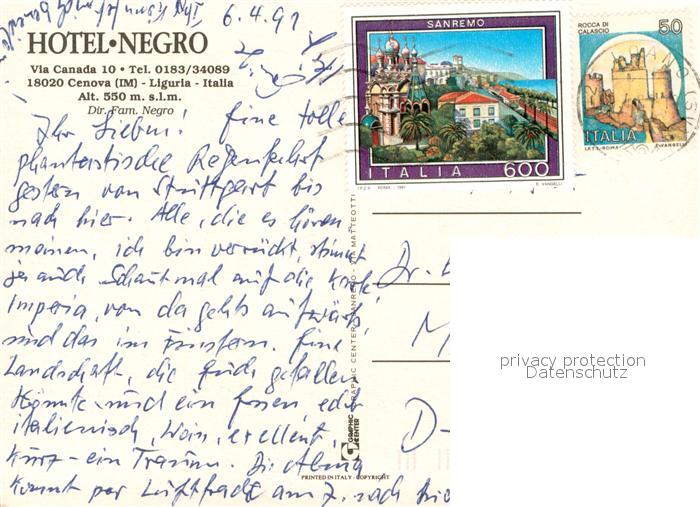 6.4.91
HOTEL•NEGRO
Via Canada 10 • Tel. 0183/34089
18020 Cenova (IM) - Liguria - Italia
Alt. 550 m. s.l.m.
Dir. Fam. Negro
Ihr Lieben! Eine tolle
phantastische Regenfahrt
gestern von Stuttgart bis
nach hier. Alle, die es hören
meinen, ich bin verrückt, stimmt
ja auch. Schaut mal auf die Karte
Imperia, von da gehts aufwärts
und das im Finstern. Eine
Landschaft, die Euch gefallen
könnte und ein Essen, echt
italienisch, Wein, exellent,
kurz - ein Traum. Die
kommt per Luftfracht am 7. nach hier
SANREMO
ITALIA 600
I.P.Z.S. ROMA - 1991 E. VANGELLI
ROCCA DI CALASCIO
50
ITALIA
I.P.Z.S. ROMA E. VANGELLI
GRAPHIC CENTER - SANREMO - VIA MATTEOTTI
GRAPHIC CENTER
PRINTED IN ITALY - COPYRIGHT
Dr.
M
D-
privacy protection
Datenschutz